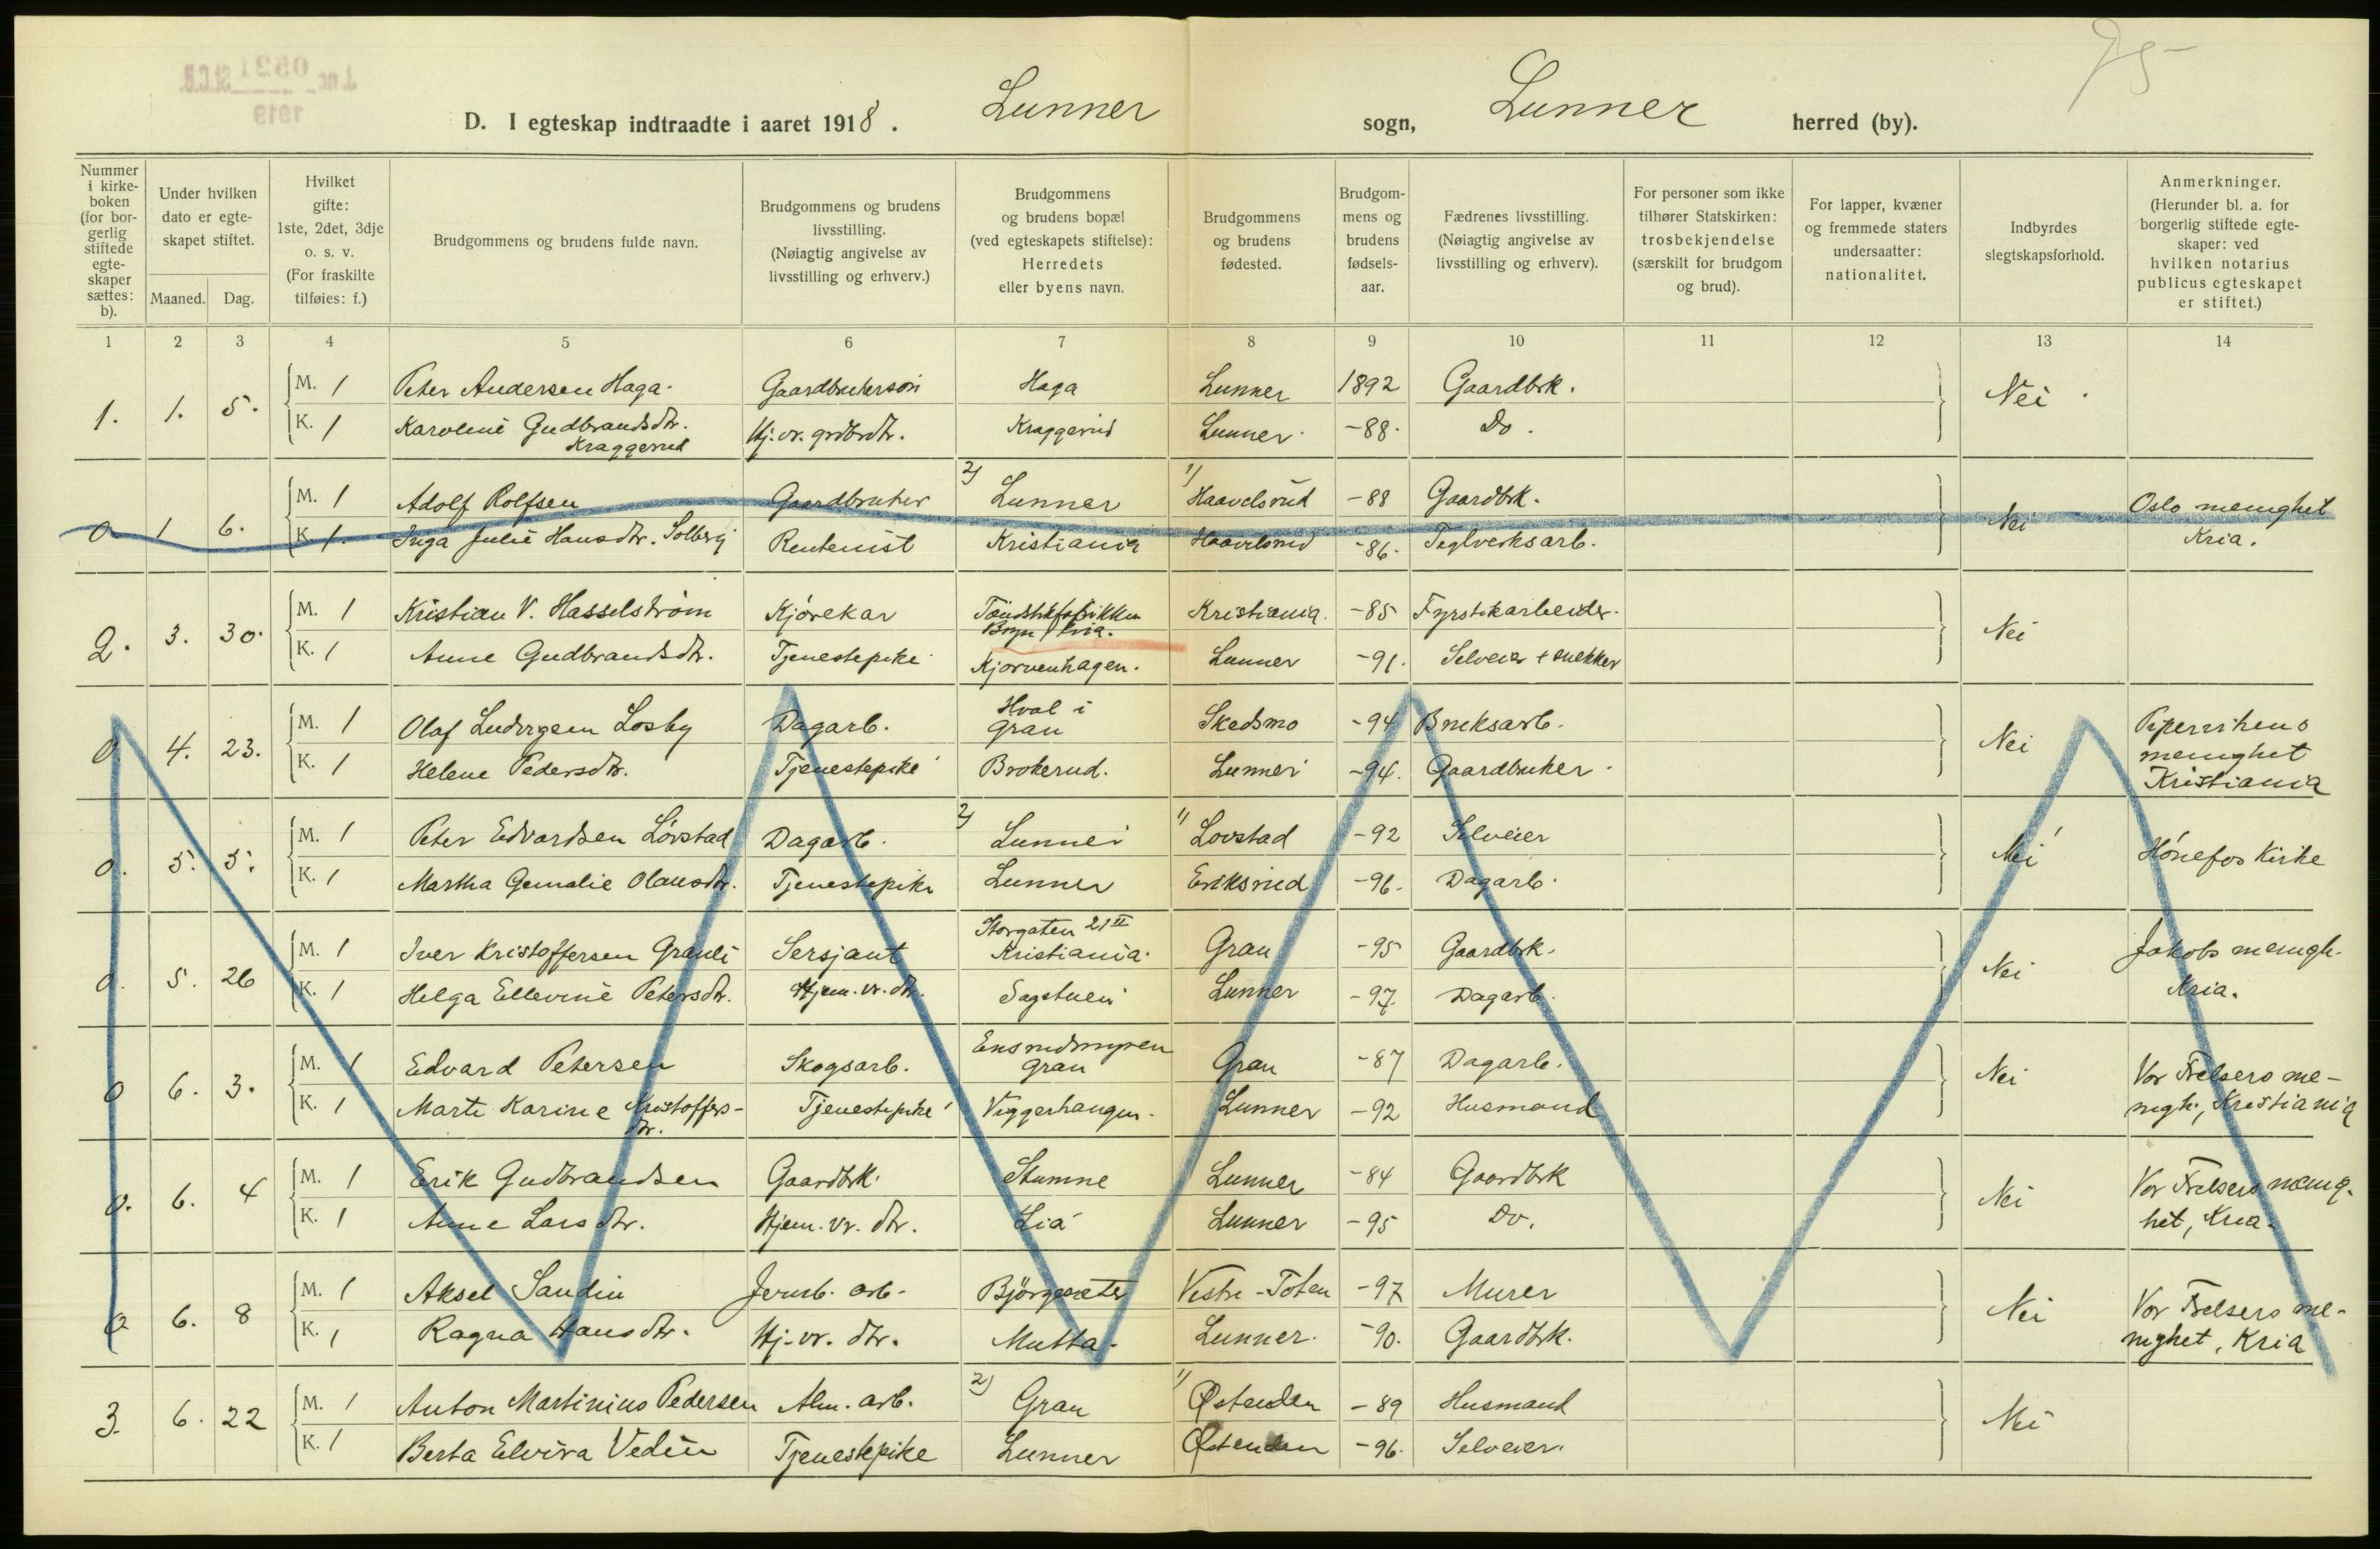 J.nr. 0531 St.C.B.
1919
75
D. I egteskap indtraadte i aaret 1918. Lunner sogn, Lunner herred (by).
Nummer i kirke-boken (for bor-gerlig stiftede egte-skaper sættes: b).
Under hvilken dato er egte-skapet stiftet.
Maaned. Dag.
Hvilket gifte: 1ste, 2det, 3dje o. s. v. (For fraskilte tilføies: f.)
Brudgommens og brudens fulde navn.
Brudgommens og brudens livsstilling. (Nøiagtig angivelse av livsstilling og erhverv.)
Brudgommens og brudens bopæl (ved egteskapets stiftelse): Herredets eller byens navn.
Brudgommens og brudens fødested.
Brudgom-mens og brudens fødsels-aar.
Fædrenes livsstilling. (Nøiagtig angivelse av livsstilling og erhverv).
For personer som ikke tilhører Statskirken: trosbekjendelse (særskilt for brudgom og brud).
For lapper, kvæner og fremmede staters undersaatter: nationalitet.
Indbyrdes slegtskapsforhold.
Anmerkninger. (Herunder bl. a. for borgerlig stiftede egte-skaper: ved hvilken notarius publicus egteskapet er stiftet.)
1 2 3 4 5 6 7 8 9 10 11 12 13 14
1. 1. 5. M. 1 Peter Andersen Haga. Gaardbrukersøn Haga Lunner 1892 Gaardbrk. Nei.
K. 1 Karoline Gudbrandsdtr. Kraggerud Hj.vr. grdbrdtr. Kraggerud Lunner -88. Do.
0 1 6. M. 1 Adolf Rolfsen Gaardbruker 2) Lunner 1) Haavelsrud -88 Gaardbrk. Nei Oslo menighet
K. 1. Inga Julie Hansdtr. Solberg Rentenist Kristiania Haavelsrud -86. Teglverksarb. Kria.
2. 3. 30. M. 1 Kristian V. Hasselstrøm Kjørekar Bryn Kria. Kristiania. -85 Fyrstikarbeider. Nei
K. 1 Anne Gudbrandsdtr. Tjenestepike Kjorvenhagen. Lunner -91. Selveier + snekker
0. 4. 23. M. 1 Olaf Ludvigsen Losby Dagarb. Hval i Gran Skedsmo -94 Bruksarb. Nei Pipervikens menighet
K. 1 Helene Pedersdtr. Tjenestepike Brokerud. Lunner -94. Gaardbruker. Kristiania
0. 5. 5. M. 1 Peter Edvardsen Lövstad Dagarb. 2) Lunner 1) Lovstad -92 Selveier Nei Hönefos Kirke
K. 1 Martha Gemalie Olausdtr. Tjenestepike Lunner Eriksrud -96. Dagarb.
0. 5. 26 M. 1 Iver Kristoffersen Granli Sersjant Storgaten 21 II Kristiania. Gran -95 Gaardbrk. Nei Jakobs menigh.
K. 1 Helga Ellevine Petersdtr. Hjem. vr. dtr. Sagstuen Lunner -97. Dagarb. Kria.
0 6. 3. M. 1 Edvard Petersen Skogsarb. Ensrudmyren Gran Gran -87 Dagarb. Nei Vor Frelsers me-
K. 1 Marte Karine Kristoffers-dtr. Tjenestepike Viggerhaugen. Lunner -92 Husmand nigh., Kristiania
0. 6. 4 M. 1 Erik Gudbrandsen Gaardbrk. Stumne Lunner -84 Gaardbrk Nei Vor Frelsers menig-
K. 1 Anne Larsdtr. Hjem. vr. dtr. Lia Lunner -95 Do. het, Kria.
0 6. 8 M. 1 Aksel Sandin Jernb. arb. Björgeseter Vestre-Toten -97 Murer Nei Vor Frelsers me-
K. 1 Ragna Hansdtr. Hj. vr. dtr. Mutta. Lunner. -90. Gaardbrk. nighet, Kria
3. 6. 22 M. 1 Anton Martinius Pedersen Alm. arb. 2) Gran 1) Østenden -89 Husmand Nei
K. 1 Berta Elvira Vedin Tjenestepike Lunner Østenden -96. Selveier.